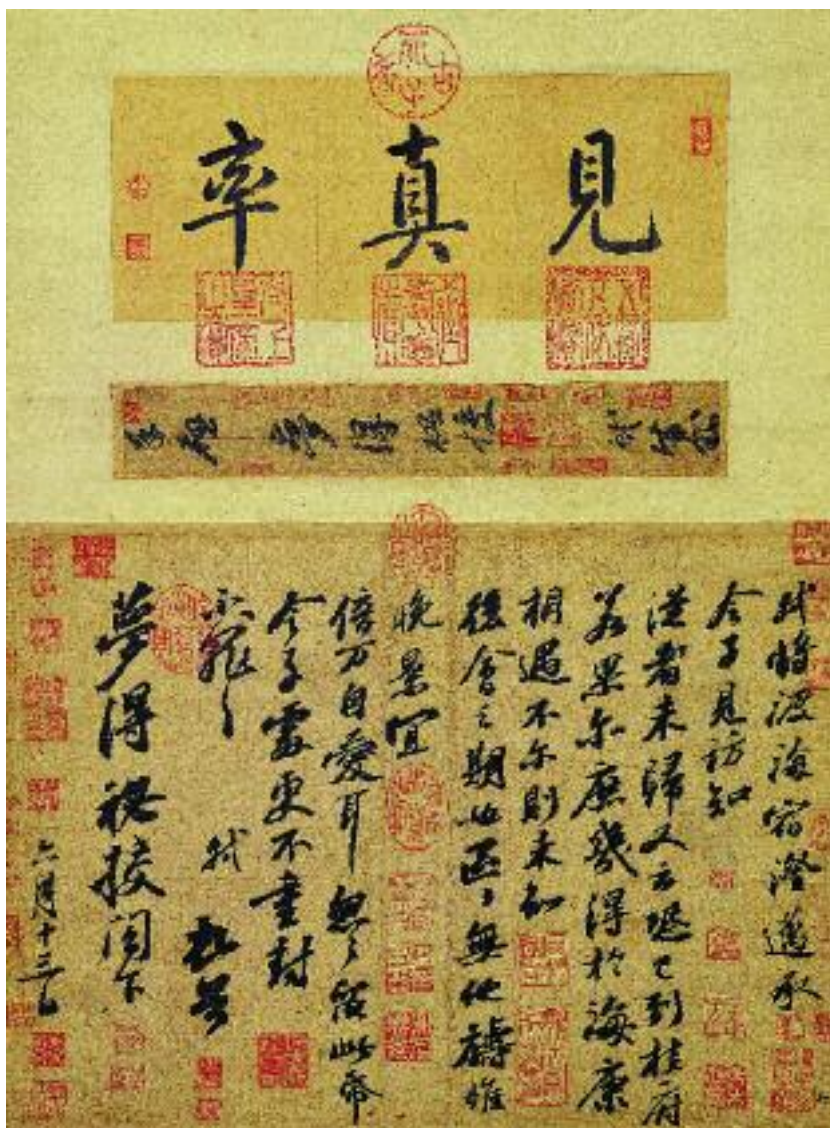 見真率
夢得秘校
軾將渡海宿澄邁承
令子見訪知
從者未歸又云恐已到桂府
若果尔庶幾得於海康
相遇不尔則未知
後會之期也區々無他禱惟
晚景宜
倍万自愛耳匆々留此帋
令子處更不重封
不罪々
軾頓首
夢得秘校閣下
六月十三日